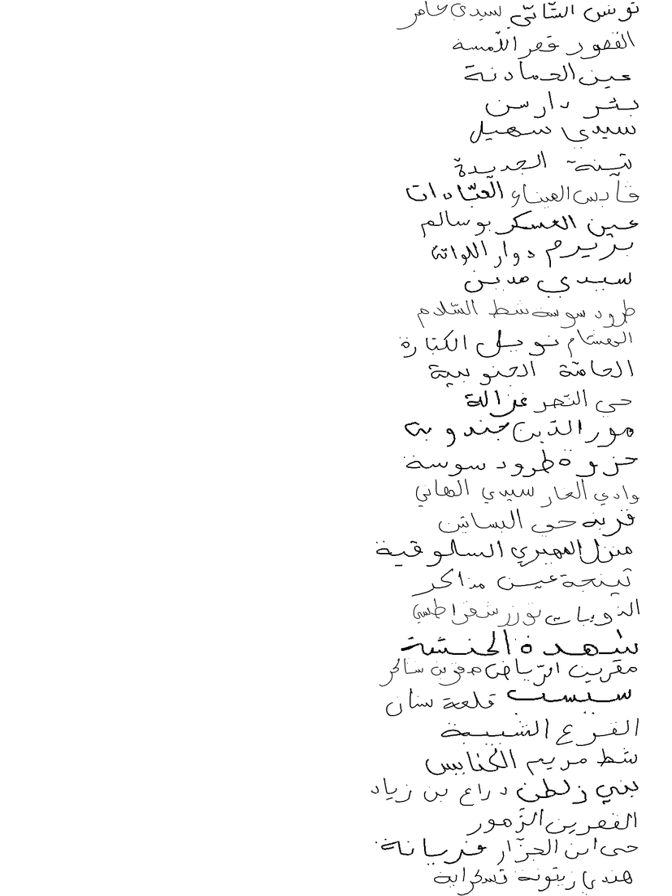 تونس الشّاتّي سيدي عامر
القصور قصر اللّمسة
عين الحمادنة
بئر دارسن
سيدي سهيل
الجديدة
قابس الميناء العبّادات
عين العسكر بوسالم
دوار اللواتة
سيدي مدين
طرود سوسة شط السّلام
نويل الكنارة
الحامّة الجنوبية
حي النصر غزالة
مور الدّين جندوبة
حزوة طرود سوسة
وادي الغار سيدي الهاني
قربة حي البساتين
منزل المهيري السلوقية
تينجة عين مذاكر
الذويبات توزر شقراطس
شهدة الخنشة
مقرين الرّياض مقرين سالجر
سبسب قلعة سنان
القرع الشبيبة
شط مريم الكنايس
بني زلطن دراع بن زياد
القصرين الزّهور
حي ابن الجزّار فريانة
هندي زيتونة تسكراية